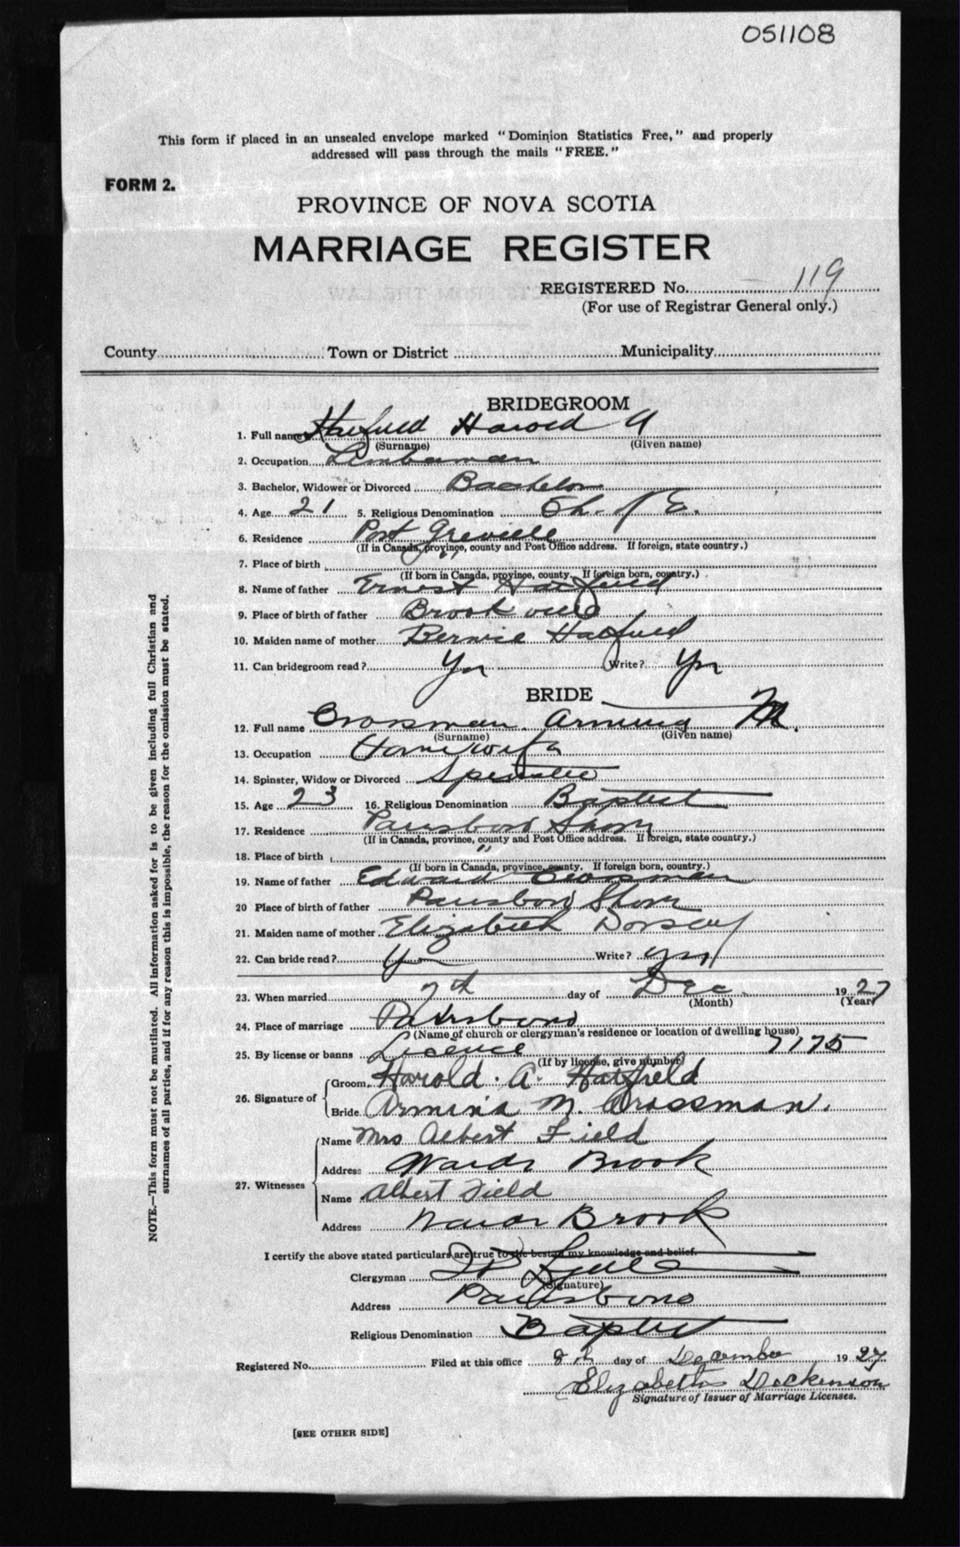 051108
This form if placed in an unsealed envelope marked "Dominion Statistics Free," and properly
addressed will pass through the mails "FREE."
FORM 2.
PROVINCE OF NOVA SCOTIA
MARRIAGE REGISTER
REGISTERED No. 119
(For use of Registrar General only.)
County Town or District Municipality
BRIDEGROOM
1. Full name Hatfield Harold A
(Surname) (Given name)
2. Occupation Lumberman
3. Bachelor, Widower or Divorced Bachelor
4. Age 21 5. Religious Denomination Ch. of E.
6. Residence Port Greville
(If in Canada, province, county and Post Office address. If foreign, state country.)
7. Place of birth " "
(If born in Canada, province, county. If foreign born, country.)
8. Name of father Ernest Hatfield
9. Place of birth of father Brookville
10. Maiden name of mother Bernice Hatfield
11. Can bridegroom read? Yes Write? Yes
BRIDE
12. Full name Crossman Armina M.
(Surname) (Given name)
13. Occupation Housewife
14. Spinster, Widow or Divorced Spinster
15. Age 23 16. Religious Denomination Baptist
17. Residence Parrsboro Shore
(If in Canada, province, county and Post Office address. If foreign, state country.)
18. Place of birth "
(If born in Canada, province, county. If foreign born, country.)
19. Name of father Edward Crossman
20 Place of birth of father Parrsboro Shore
21. Maiden name of mother Elizabeth Dorsey
22. Can bride read? Yes Write? Yes
23. When married 7th day of Dec. 1927
(Month) (Year)
24. Place of marriage Parrsboro
(Name of church or clergyman's residence or location of dwelling house)
25. By license or banns Licence 7175
(If by license, give number)
26. Signature of
Groom Harold. A. Hatfield
Bride Armina M. Crossman.
27. Witnesses
Name Mrs Albert Field
Address Wards Brook
Name Albert Field
Address Wards Brook
I certify the above stated particulars are true to the best of my knowledge and belief.
Clergyman
(Signature)
Address Parrsboro
Religious Denomination Baptist
Registered No. Filed at this office 8th day of December 1927
Elizabeth Dickinson
Signature of Issuer of Marriage Licenses.
[SEE OTHER SIDE]
NOTE.—This form must not be mutilated. All information asked for is to be given including full Christian and
surnames of all parties, and if for any reason this is impossible, the reason for the omission must be stated.